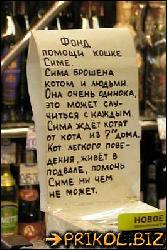 ФОНД
ПОМОЩИ КОШКЕ
СИМЕ.
СИМА БРОШЕНА
КОТОМ И ЛЮДЬМИ.
ОНА ОЧЕНЬ ОДИНОКА,
ЭТО МОЖЕТ СЛУ-
ЧИТЬСЯ С КАЖДЫМ
СИМА ЖДЁТ КОТЯТ
ОТ КОТА ИЗ 7го ДОМА.
КОТ ЛЕГКОГО ПОВЕ-
ДЕНИЯ, ЖИВЁТ В
ПОДВАЛЕ, ПОМОЧЬ
СИМЕ НИ ЧЕМ
НЕ МОЖЕТ.
НОВОЕ
PRIKOL.BIZ